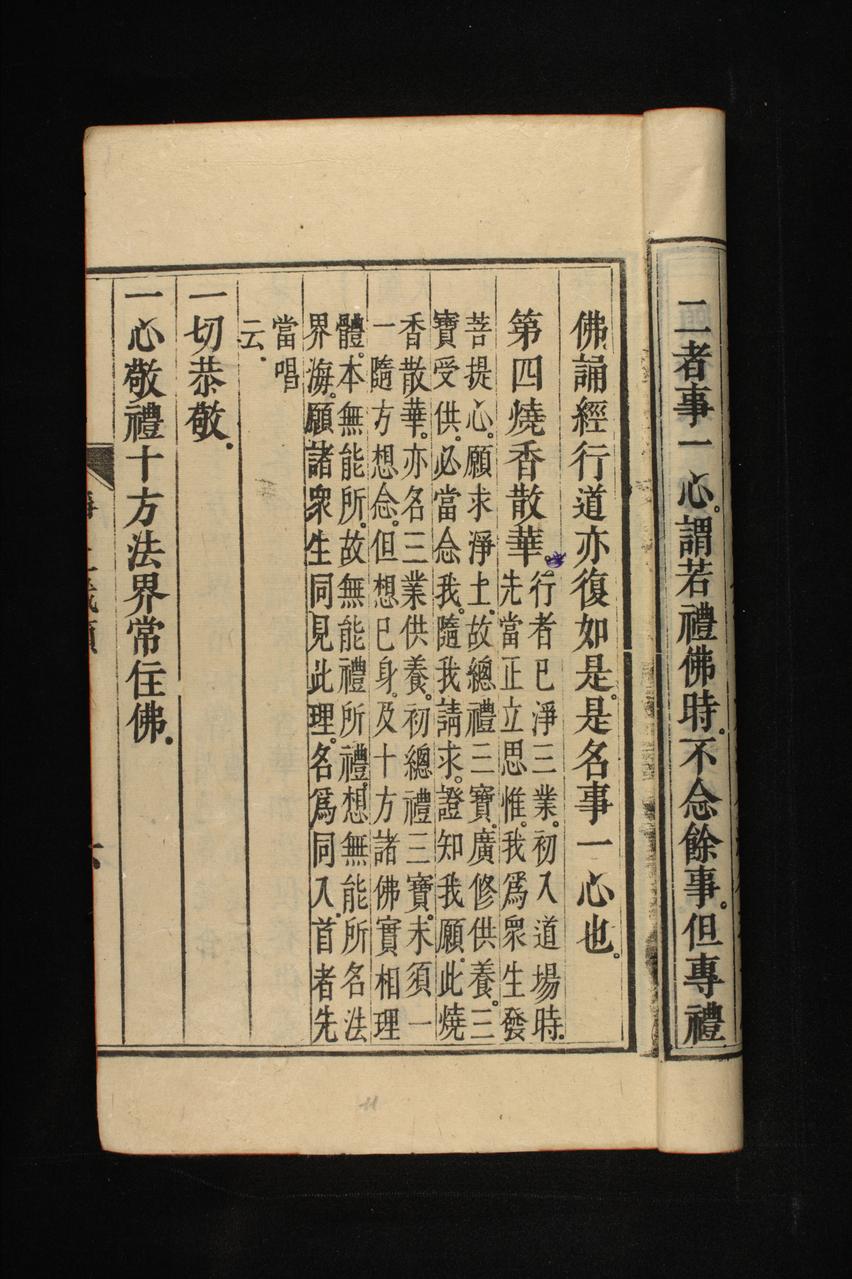 二者事一心。謂若禮佛時。不念餘事。但專禮
佛誦經行道亦復如是。是名事一心也。
第四燒香散華。行者已淨三業。初入道場時。
先當正立思惟。我爲衆生發
菩提心。願求淨土。故總禮三寶。廣修供養。三
寶受供。必當念我。隨我請求。證知我願。此燒
香散華。亦名三業供養。初總禮三寶。末須一
一隨方想念。但想已身。及十方諸佛實相理
體。本無能所。故無能禮所禮。想無能所名法
界海。願諸衆生同見此理。名爲同入。首者先
當唱
云。
一切恭敬。
一心敬禮十方法界常住佛。